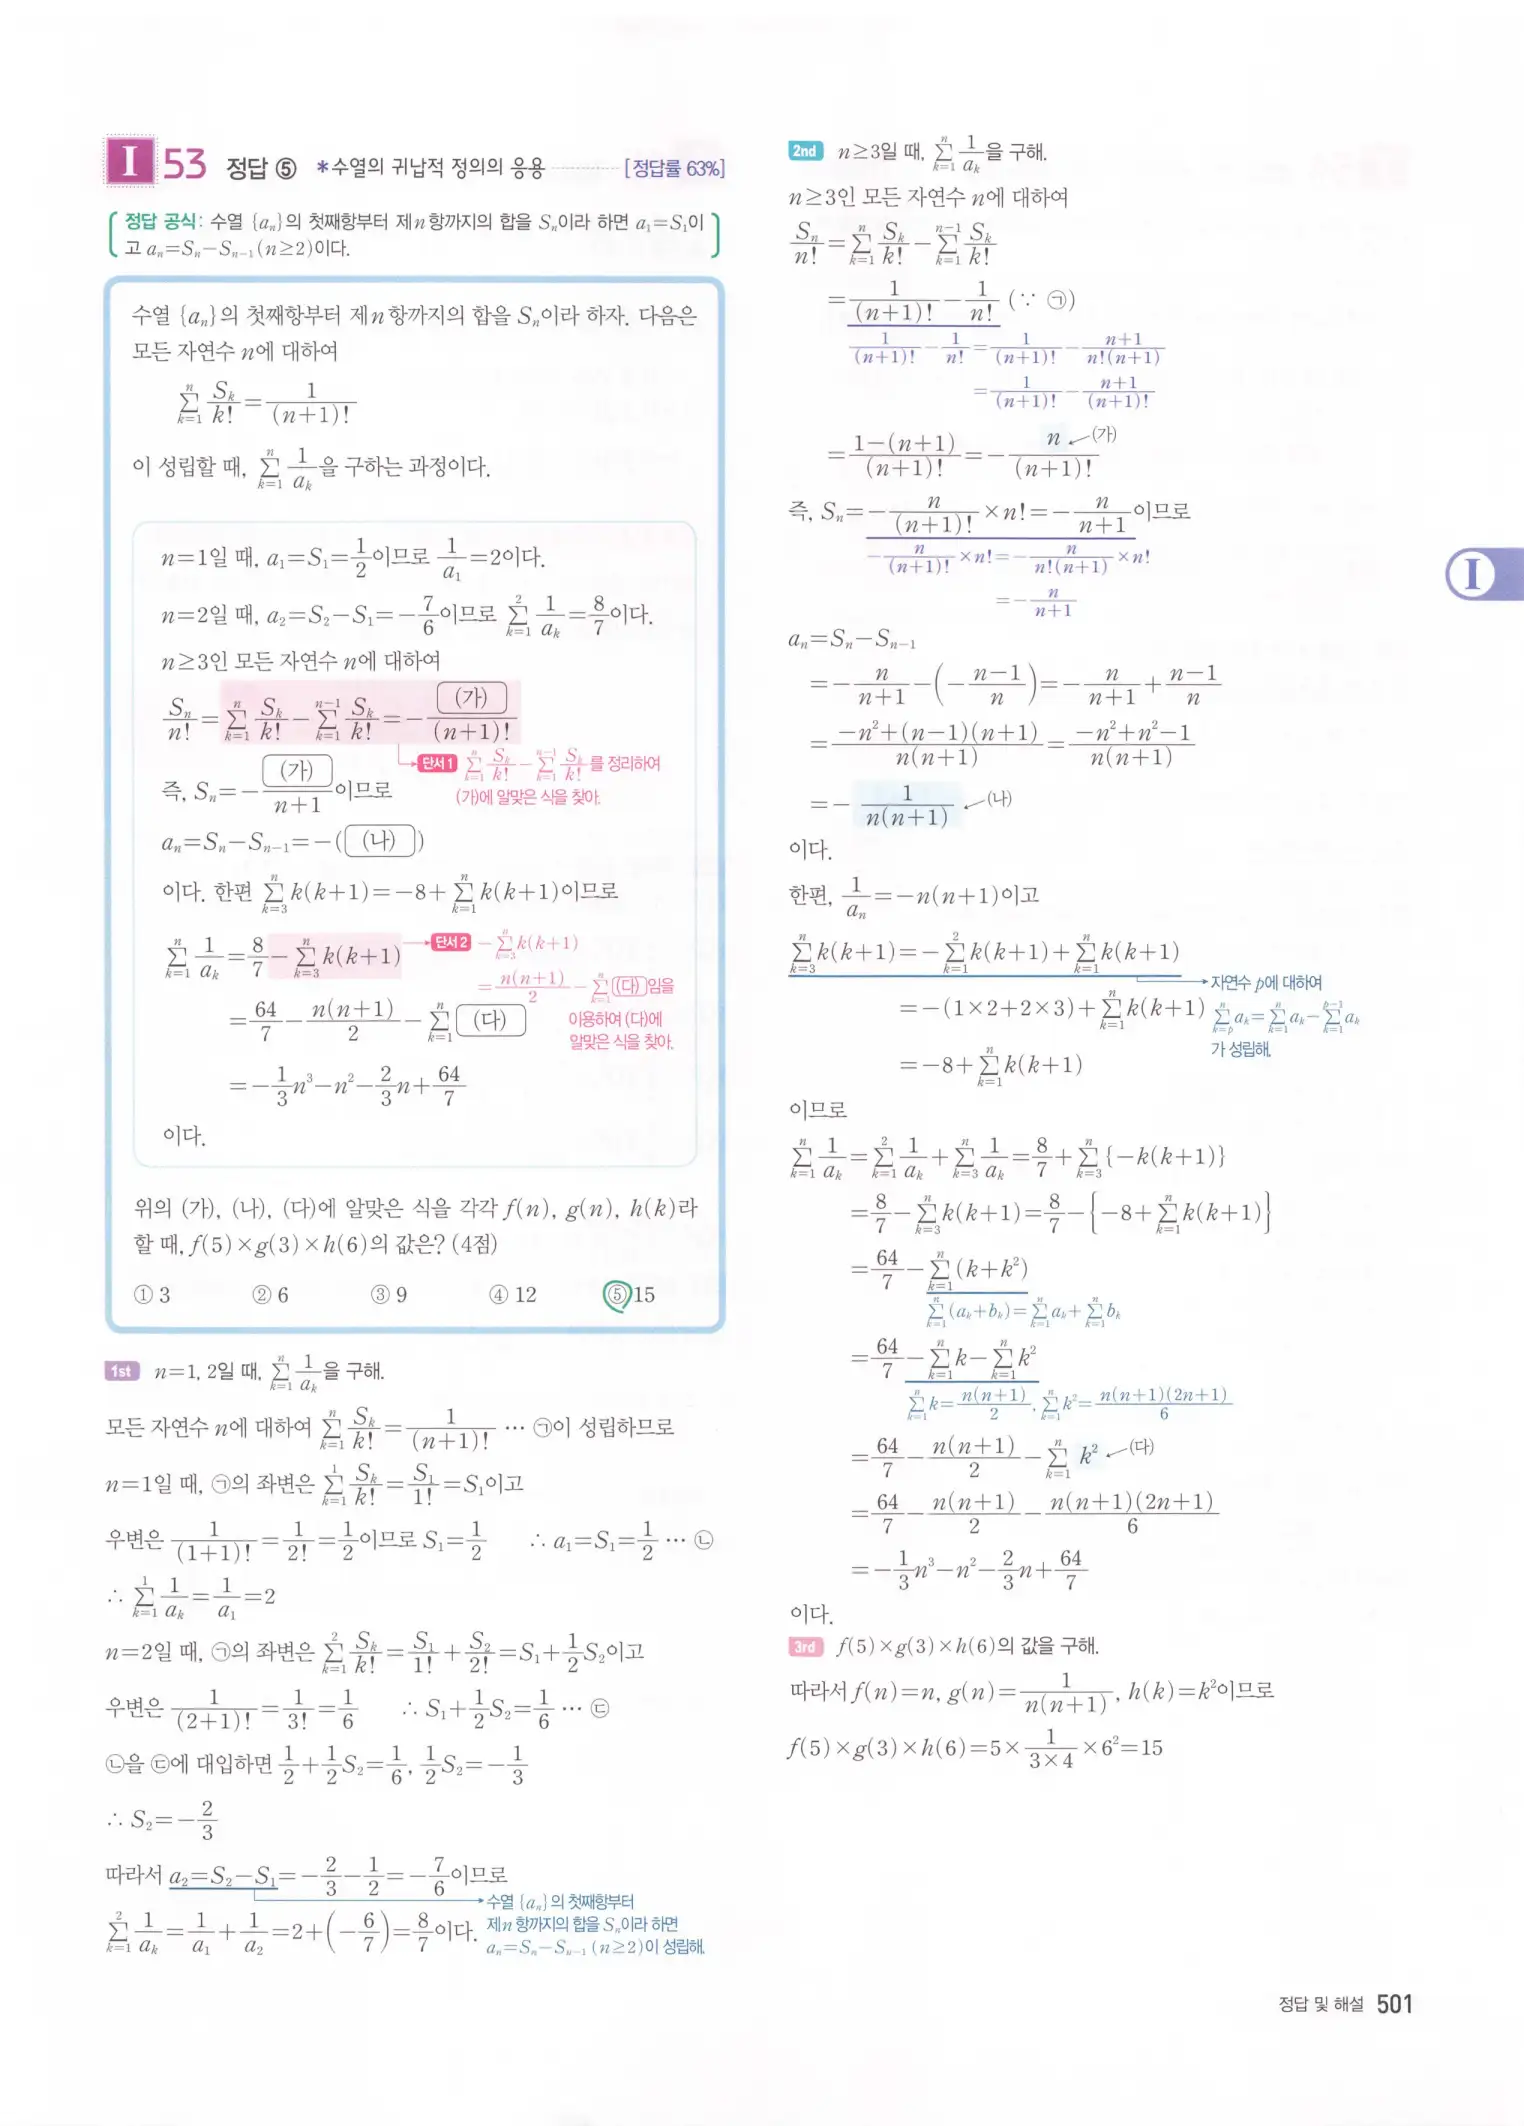 I 53 정답 ⑤ *수열의 귀납적 정의의 응용 ············ [정답률 63%]
정답 공식: 수열 {aₙ}의 첫째항부터 제n항까지의 합을 Sₙ이라 하면 a₁=S₁이
고 aₙ=Sₙ−Sₙ₋₁(n≥2)이다.
수열 {aₙ}의 첫째항부터 제n항까지의 합을 Sₙ이라 하자. 다음은
모든 자연수 n에 대하여
∑_{k=1}^{n} S_k/k! = 1/(n+1)!
이 성립할 때, ∑_{k=1}^{n} 1/a_k을 구하는 과정이다.
n=1일 때, a₁=S₁=1/2이므로 1/a₁=2이다.
n=2일 때, a₂=S₂−S₁=−7/6이므로 ∑_{k=1}^{2} 1/a_k=8/7이다.
n≥3인 모든 자연수 n에 대하여
Sₙ/n! = ∑_{k=1}^{n} S_k/k! − ∑_{k=1}^{n−1} S_k/k! = − (가)/(n+1)!
단서1 ∑_{k=1}^{n} S_k/k! − ∑_{k=1}^{n−1} S_k/k!를 정리하여
(가)에 알맞은 식을 찾아.
즉, Sₙ=− (가)/(n+1)이므로
aₙ=Sₙ−Sₙ₋₁=−( (나) )
이다. 한편 ∑_{k=3}^{n} k(k+1)=−8+∑_{k=1}^{n} k(k+1)이므로
∑_{k=1}^{n} 1/a_k = 8/7 − ∑_{k=3}^{n} k(k+1)
단서2 −∑_{k=3}^{n} k(k+1)
= n(n+1)/2 − ∑_{k=1}^{n} (다)임을
이용하여 (다)에
알맞은 식을 찾아.
= 64/7 − n(n+1)/2 − ∑_{k=1}^{n} (다)
= −1/3 n³ − n² − 2/3 n + 64/7
이다.
위의 (가), (나), (다)에 알맞은 식을 각각 f(n), g(n), h(k)라
할 때, f(5)×g(3)×h(6)의 값은? (4점)
① 3 ② 6 ③ 9 ④ 12 ⑤ 15
1st n=1, 2일 때, ∑_{k=1}^{n} 1/a_k을 구해.
모든 자연수 n에 대하여 ∑_{k=1}^{n} S_k/k! = 1/(n+1)! … ㉠이 성립하므로
n=1일 때, ㉠의 좌변은 ∑_{k=1}^{1} S_k/k! = S₁/1! = S₁이고
우변은 1/(1+1)! = 1/2! = 1/2이므로 S₁=1/2 ∴ a₁=S₁=1/2 … ㉡
∴ ∑_{k=1}^{1} 1/a_k = 1/a₁ = 2
n=2일 때, ㉠의 좌변은 ∑_{k=1}^{2} S_k/k! = S₁/1! + S₂/2! = S₁+1/2 S₂이고
우변은 1/(2+1)! = 1/3! = 1/6 ∴ S₁+1/2 S₂=1/6 … ㉢
㉡을 ㉢에 대입하면 1/2+1/2 S₂=1/6, 1/2 S₂=−1/3
∴ S₂=−2/3
따라서 a₂=S₂−S₁=−2/3−1/2=−7/6이므로
∑_{k=1}^{2} 1/a_k = 1/a₁+1/a₂ = 2+(−6/7) = 8/7이다.
수열 {aₙ}의 첫째항부터
제n항까지의 합을 Sₙ이라 하면
aₙ=Sₙ−Sₙ₋₁ (n≥2)이 성립해.
2nd n≥3일 때, ∑_{k=1}^{n} 1/a_k을 구해.
n≥3인 모든 자연수 n에 대하여
Sₙ/n! = ∑_{k=1}^{n} S_k/k! − ∑_{k=1}^{n−1} S_k/k!
= 1/(n+1)! − 1/n! (∵ ㉠)
1/(n+1)! − 1/n! = 1/(n+1)! − (n+1)/n!(n+1)
= 1/(n+1)! − (n+1)/(n+1)!
= {1−(n+1)}/(n+1)! = − n/(n+1)! (가)
즉, Sₙ=− n/(n+1)! × n! = − n/(n+1)이므로
− n/(n+1)! × n! = − n/n!(n+1) × n!
= − n/(n+1)
aₙ=Sₙ−Sₙ₋₁
= − n/(n+1) − (− (n−1)/n) = − n/(n+1) + (n−1)/n
= {−n²+(n−1)(n+1)}/n(n+1) = (−n²+n²−1)/n(n+1)
= − 1/n(n+1) (나)
이다.
한편, 1/aₙ=−n(n+1)이고
∑_{k=3}^{n} k(k+1) = −∑_{k=1}^{2} k(k+1)+∑_{k=1}^{n} k(k+1)
자연수 p에 대하여
∑_{k=p}^{n} a_k=∑_{k=1}^{n} a_k−∑_{k=1}^{p−1} a_k
가 성립해.
= −(1×2+2×3)+∑_{k=1}^{n} k(k+1)
= −8+∑_{k=1}^{n} k(k+1)
이므로
∑_{k=1}^{n} 1/a_k = ∑_{k=1}^{2} 1/a_k + ∑_{k=3}^{n} 1/a_k = 8/7 + ∑_{k=3}^{n} {−k(k+1)}
= 8/7 − ∑_{k=3}^{n} k(k+1) = 8/7 − {−8+∑_{k=1}^{n} k(k+1)}
= 64/7 − ∑_{k=1}^{n} (k+k²)
∑_{k=1}^{n} (a_k+b_k)=∑_{k=1}^{n} a_k+∑_{k=1}^{n} b_k
= 64/7 − ∑_{k=1}^{n} k − ∑_{k=1}^{n} k²
∑_{k=1}^{n} k= n(n+1)/2, ∑_{k=1}^{n} k²= n(n+1)(2n+1)/6
= 64/7 − n(n+1)/2 − ∑_{k=1}^{n} k² (다)
= 64/7 − n(n+1)/2 − n(n+1)(2n+1)/6
= −1/3 n³ − n² − 2/3 n + 64/7
이다.
3rd f(5)×g(3)×h(6)의 값을 구해.
따라서 f(n)=n, g(n)= 1/n(n+1), h(k)=k²이므로
f(5)×g(3)×h(6)=5× 1/(3×4) ×6²=15
I
정답 및 해설 501